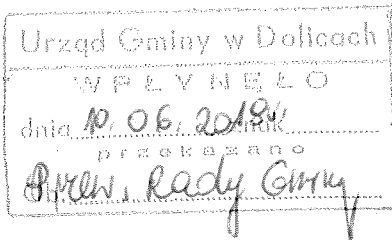 Urząd Gminy w Dolicach
WPŁYNĘŁO
dnia 10. 06. 2019r.
przekazano
Przew. Rady Gminy